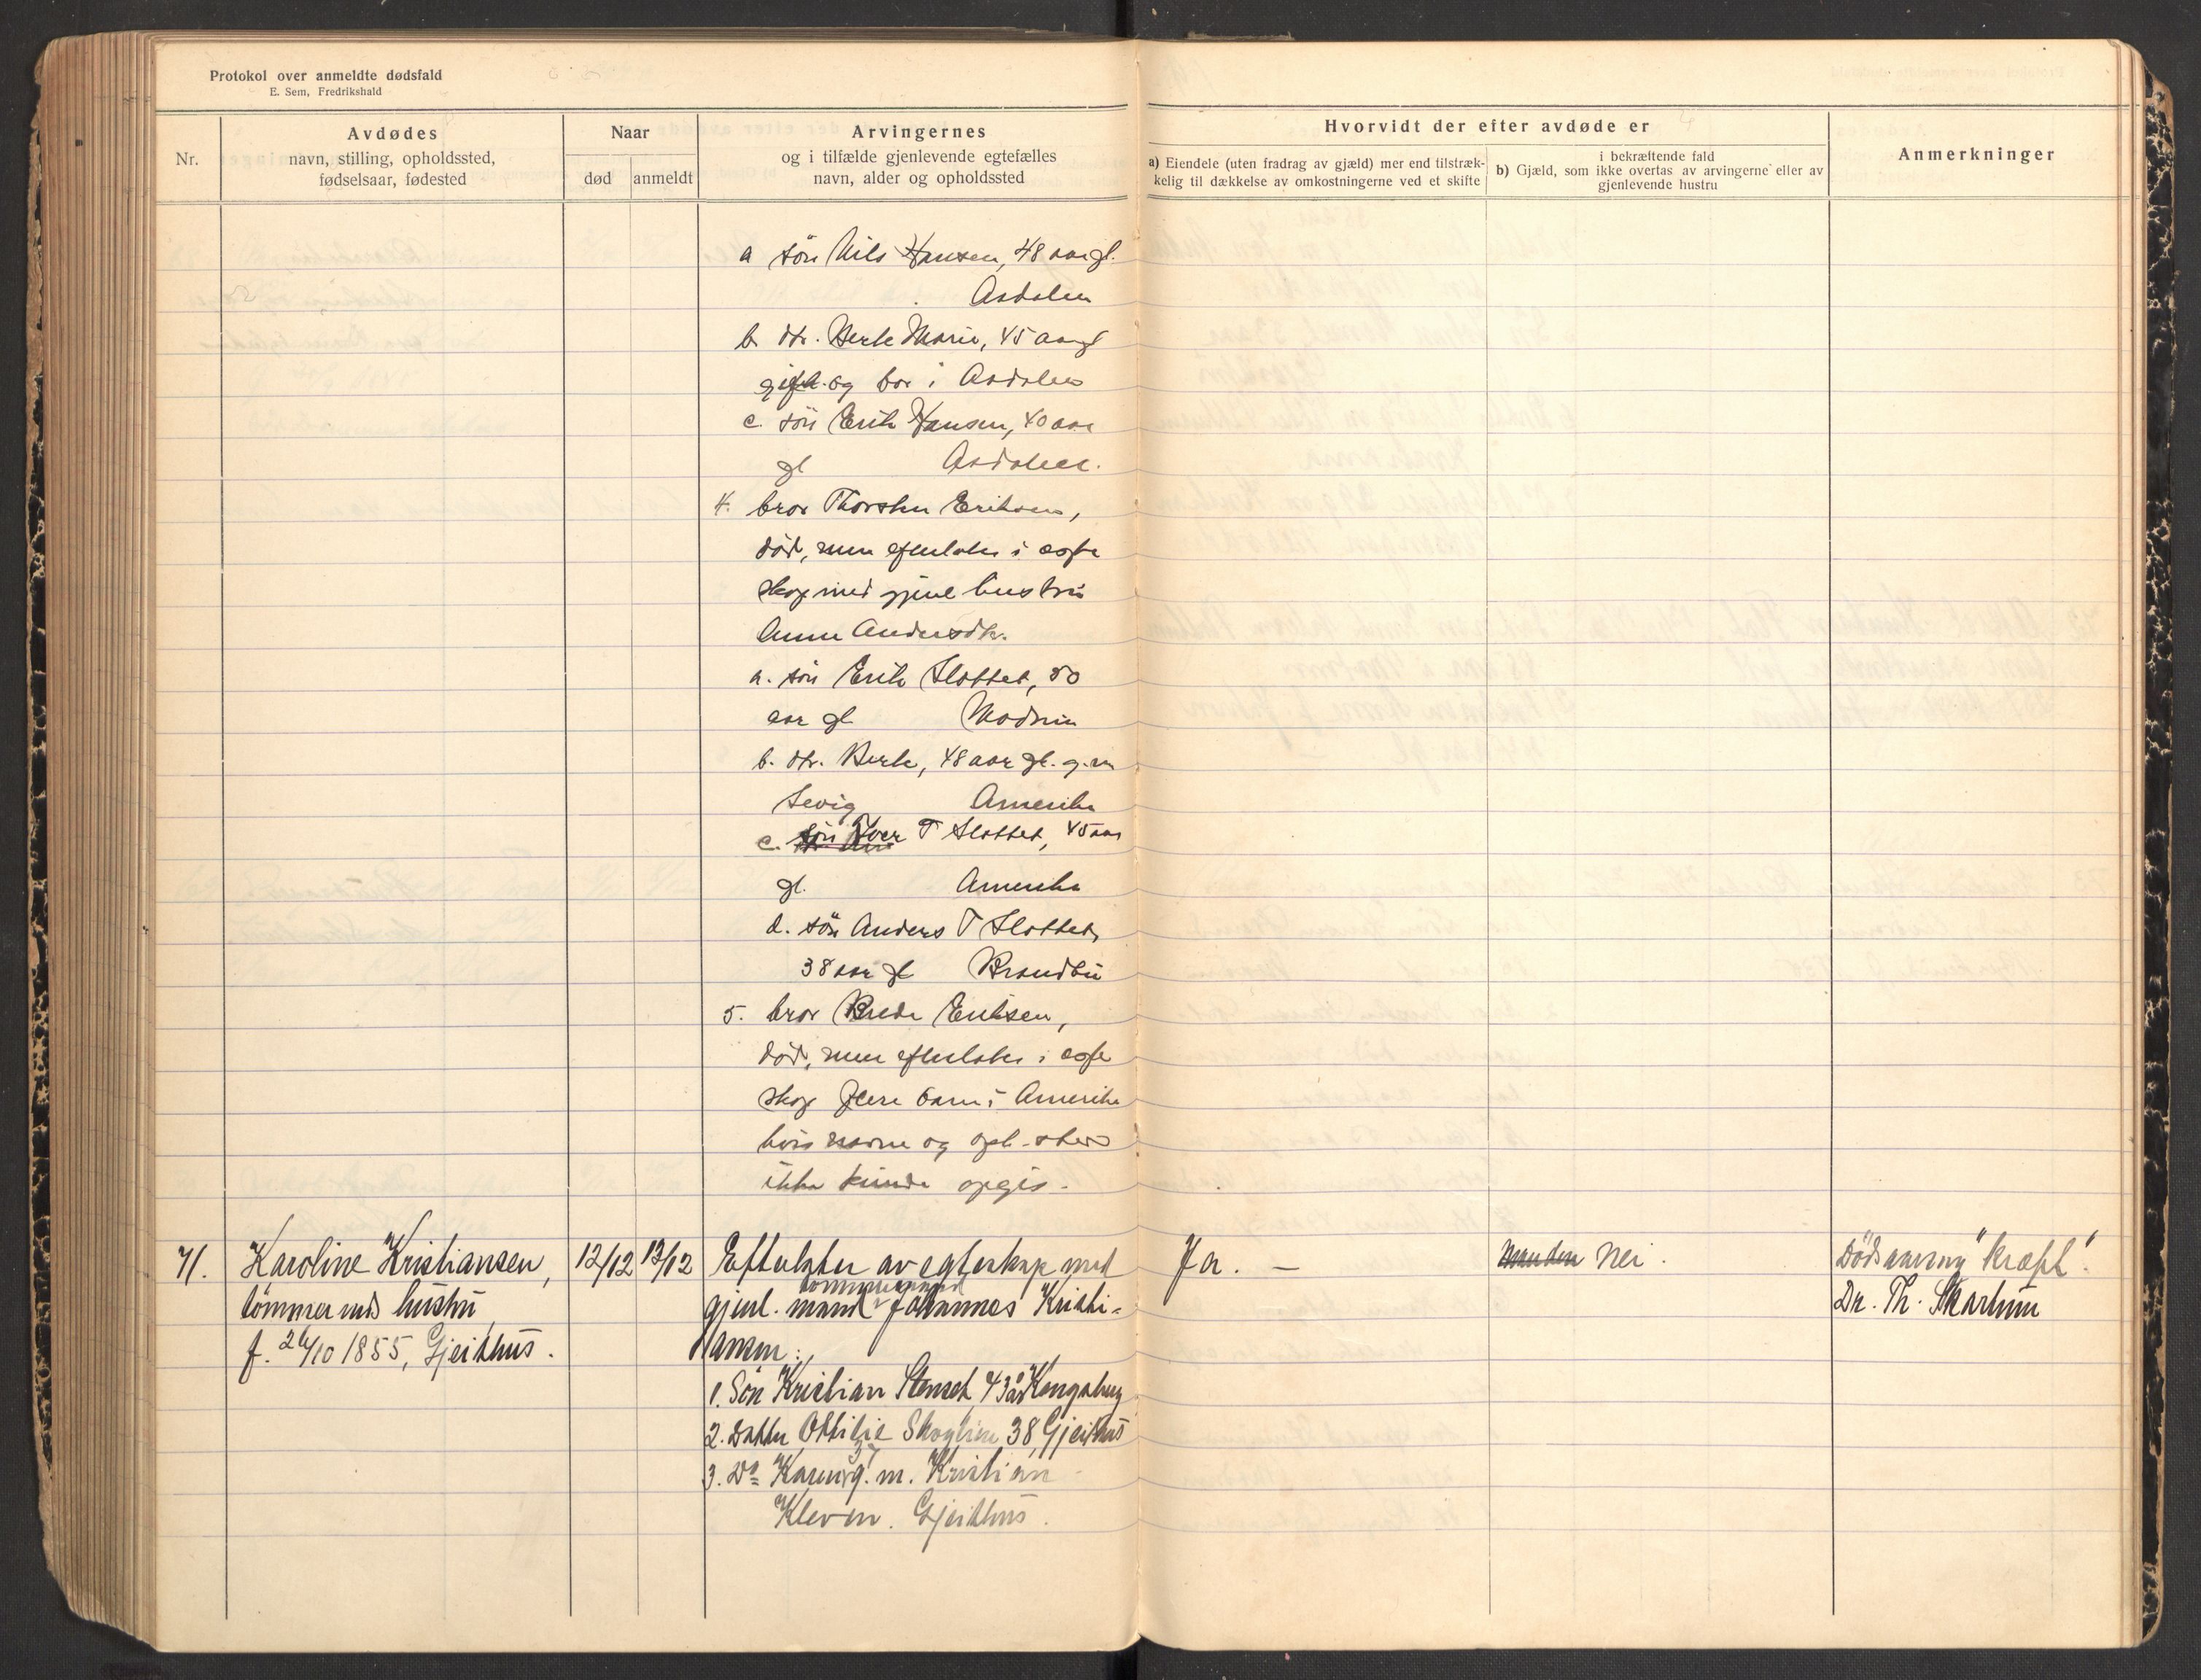 Protokol over anmeldte dødsfald
E. Sem, Fredrikshald
Nr.
Avdødes
navn, stilling, opholdssted,
fødselsaar, fødested
Naar
død
anmeldt
Arvingernes
og i tilfælde gjenlevende egtefælles
navn, alder og opholdssted
Hvorvidt der efter avdøde er
a) Eiendele (uten fradrag av gjæld) mer end tilstræk-
kelig til dækkelse av omkostningerne ved et skifte
i bekræftende fald
b) Gjæld, som ikke overtas av arvingerne eller av
gjenlevende hustru
Anmerkninger
a søn Nils Hansen, 48 aar gl.
Aadalen
b dtr. Berte Marie, 45 aar gl
gift og bor i Aadalen
c. søn Erik Hansen, 40 aar
gl Aadalen.
4. bror Thorsten Eriksen,
død, men efterlater i egte
skap med gjenl hustru
Anne Andersdtr.
a. søn Erik Slottet, 50
aar gl Modum
b. dtr. Berte, 48 aar gl. g. m
Amerika
c. søn Iver T Slottet, 45 aar
gl. Amerika
d. søn Anders T Slottet,
38 aar gl Brandbu
5. bror Brede Eriksen,
død, men efterlater i egte
skap flere barn i Amerika
hvis navne og oph.sted
ikke kunde opgis.
71.
Karoline Kristiansen,
tømmermd hustru
f. 26/10 1855, Gjeithus.
12/12
13/12
Efterlater av egteskap med
gjenl. mand tømmermand Johannes Kristi-
ansen:
1. Søn Kristian Stenset 43 år Kongsberg
2. Datter Ottilie Skoglien 38, Gjeithus
3. Do Karen 37 g. m. Kristian
Kleven. Gjeithus.
Ja. —
Manden Nei.
Dødsaarsag "kræft".
Dr. Th. Skarhum